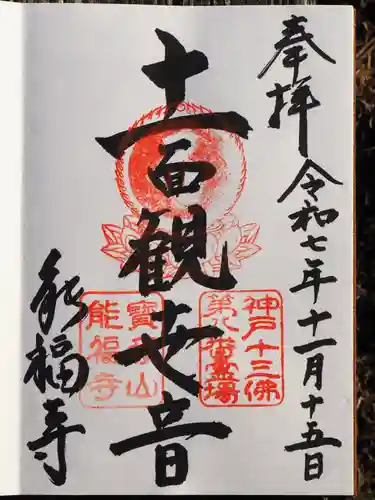 奉拝 令和七年十一月十五日
十一面観世音
能福寺
神戸十三佛
第八番霊場
寶積山
能福寺